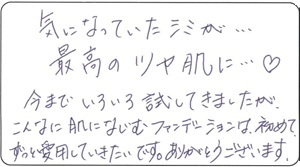 気になっていたシミが…
最高のツヤ肌に…♡
今までいろいろ試してきましたが、
こんなに肌になじむファンデーションは、初めて
ずっと愛用していきたいです。ありがとうございます。